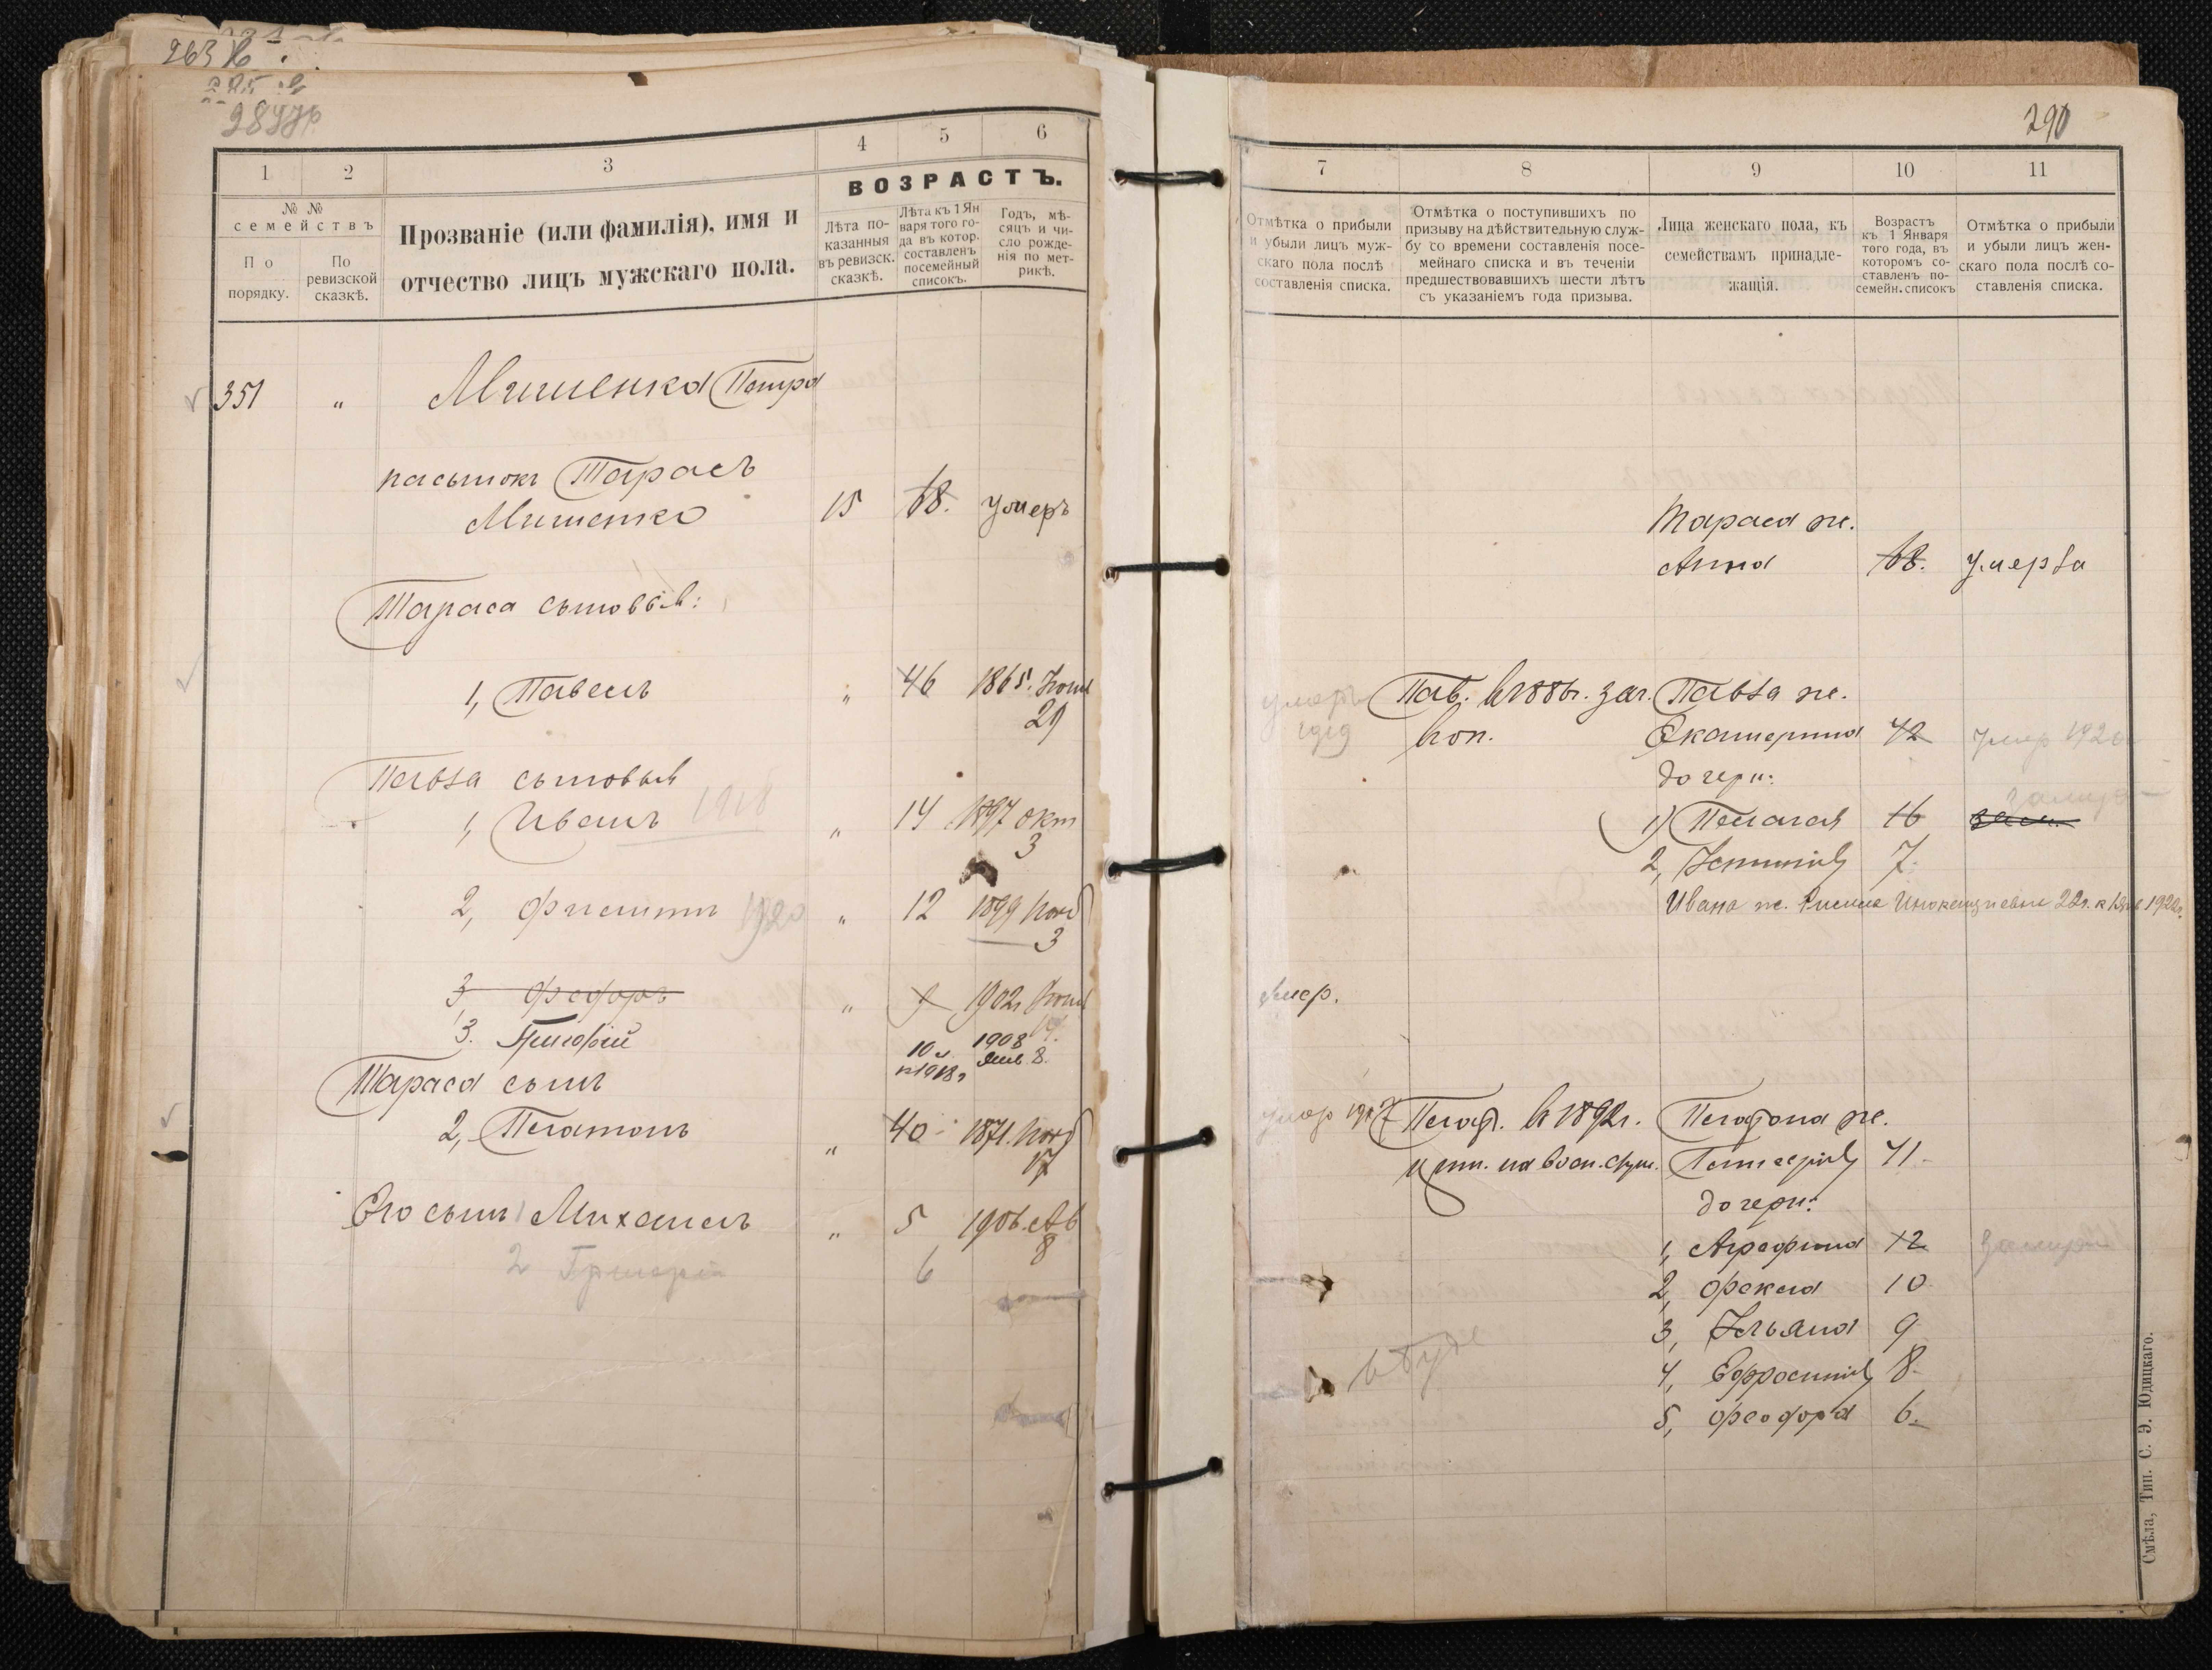 263
290
1
2
3
4
5
6
№ №
семействъ
По
порядку.
По
ревизской
сказкѣ.
Прозваніе (или фамилія), имя и
отчество лицъ мужскаго пола.
ВОЗРАСТЪ.
Лѣта по-
казанныя
въ ревизск.
сказкѣ.
Лѣта къ 1 Ян
варя того го-
да въ котор.
составленъ
посемейный
списокъ.
Годъ, мѣ-
сяцъ и чи-
сло рожде-
нія по мет-
рикѣ.
351 " Мишенка Петра
пасынокъ Тарасъ
Мишенко 15 68. умеръ
Тараса сыновья:
1, Павелъ " 46 1865. Іюня
29
Павла сыновья
1, Иванъ 1918 " 14 1897 окт
3
2, Филиппъ 1920 " 12 1899 Нояб
3
3 Федоръ " 9 1902 Іюня
19.
3. Тимофій 10 1908
к 1918 г Янв. 8.
Тараса сынъ
2, Платонъ " 40 1871. Нояб
17
Его сынъ Михаилъ " 5 1906. Ав
8
2 Григорій 6
7
8
9
10
11
Отмѣтка о прибыли
и убыли лицъ муж-
скаго пола послѣ
составленія списка.
Отмѣтка о поступившихъ по
призыву на дѣйствительную служ-
бу со времени составленія посе-
мейнаго списка и въ теченіи
предшествовавшихъ шести лѣтъ
съ указаніемъ года призыва.
Лица женскаго пола, къ
семействамъ принадле-
жащія.
Возрастъ
къ 1 Января
того года, въ
которомъ со-
ставленъ по-
семейн. списокъ
Отмѣтка о прибыли
и убыли лицъ жен-
скаго пола послѣ со-
ставленія списка.
Тараса ж.
Анна 68. умерла
умеръ Пав. в 1886г. зач. Павла ж.
1919 Екатерина 42 умер 1920
дочери:
замуж
1) Пелагея 16 зам.
2, Устинія 7.
Ивана ж. 22л. к 1 Янв 1920г.
умер.
умер 1917 Платон. в 1892г. Платона ж.
прин. на воен. служ. Гликерія 41
дочери:
1, Агрефина 12 замужем
2, Фекла 10
3, Ульяна 9
4, Ефросинія 8
5, Феодора 6.
Смѣла, Тип. С. Э. Юдицкаго.